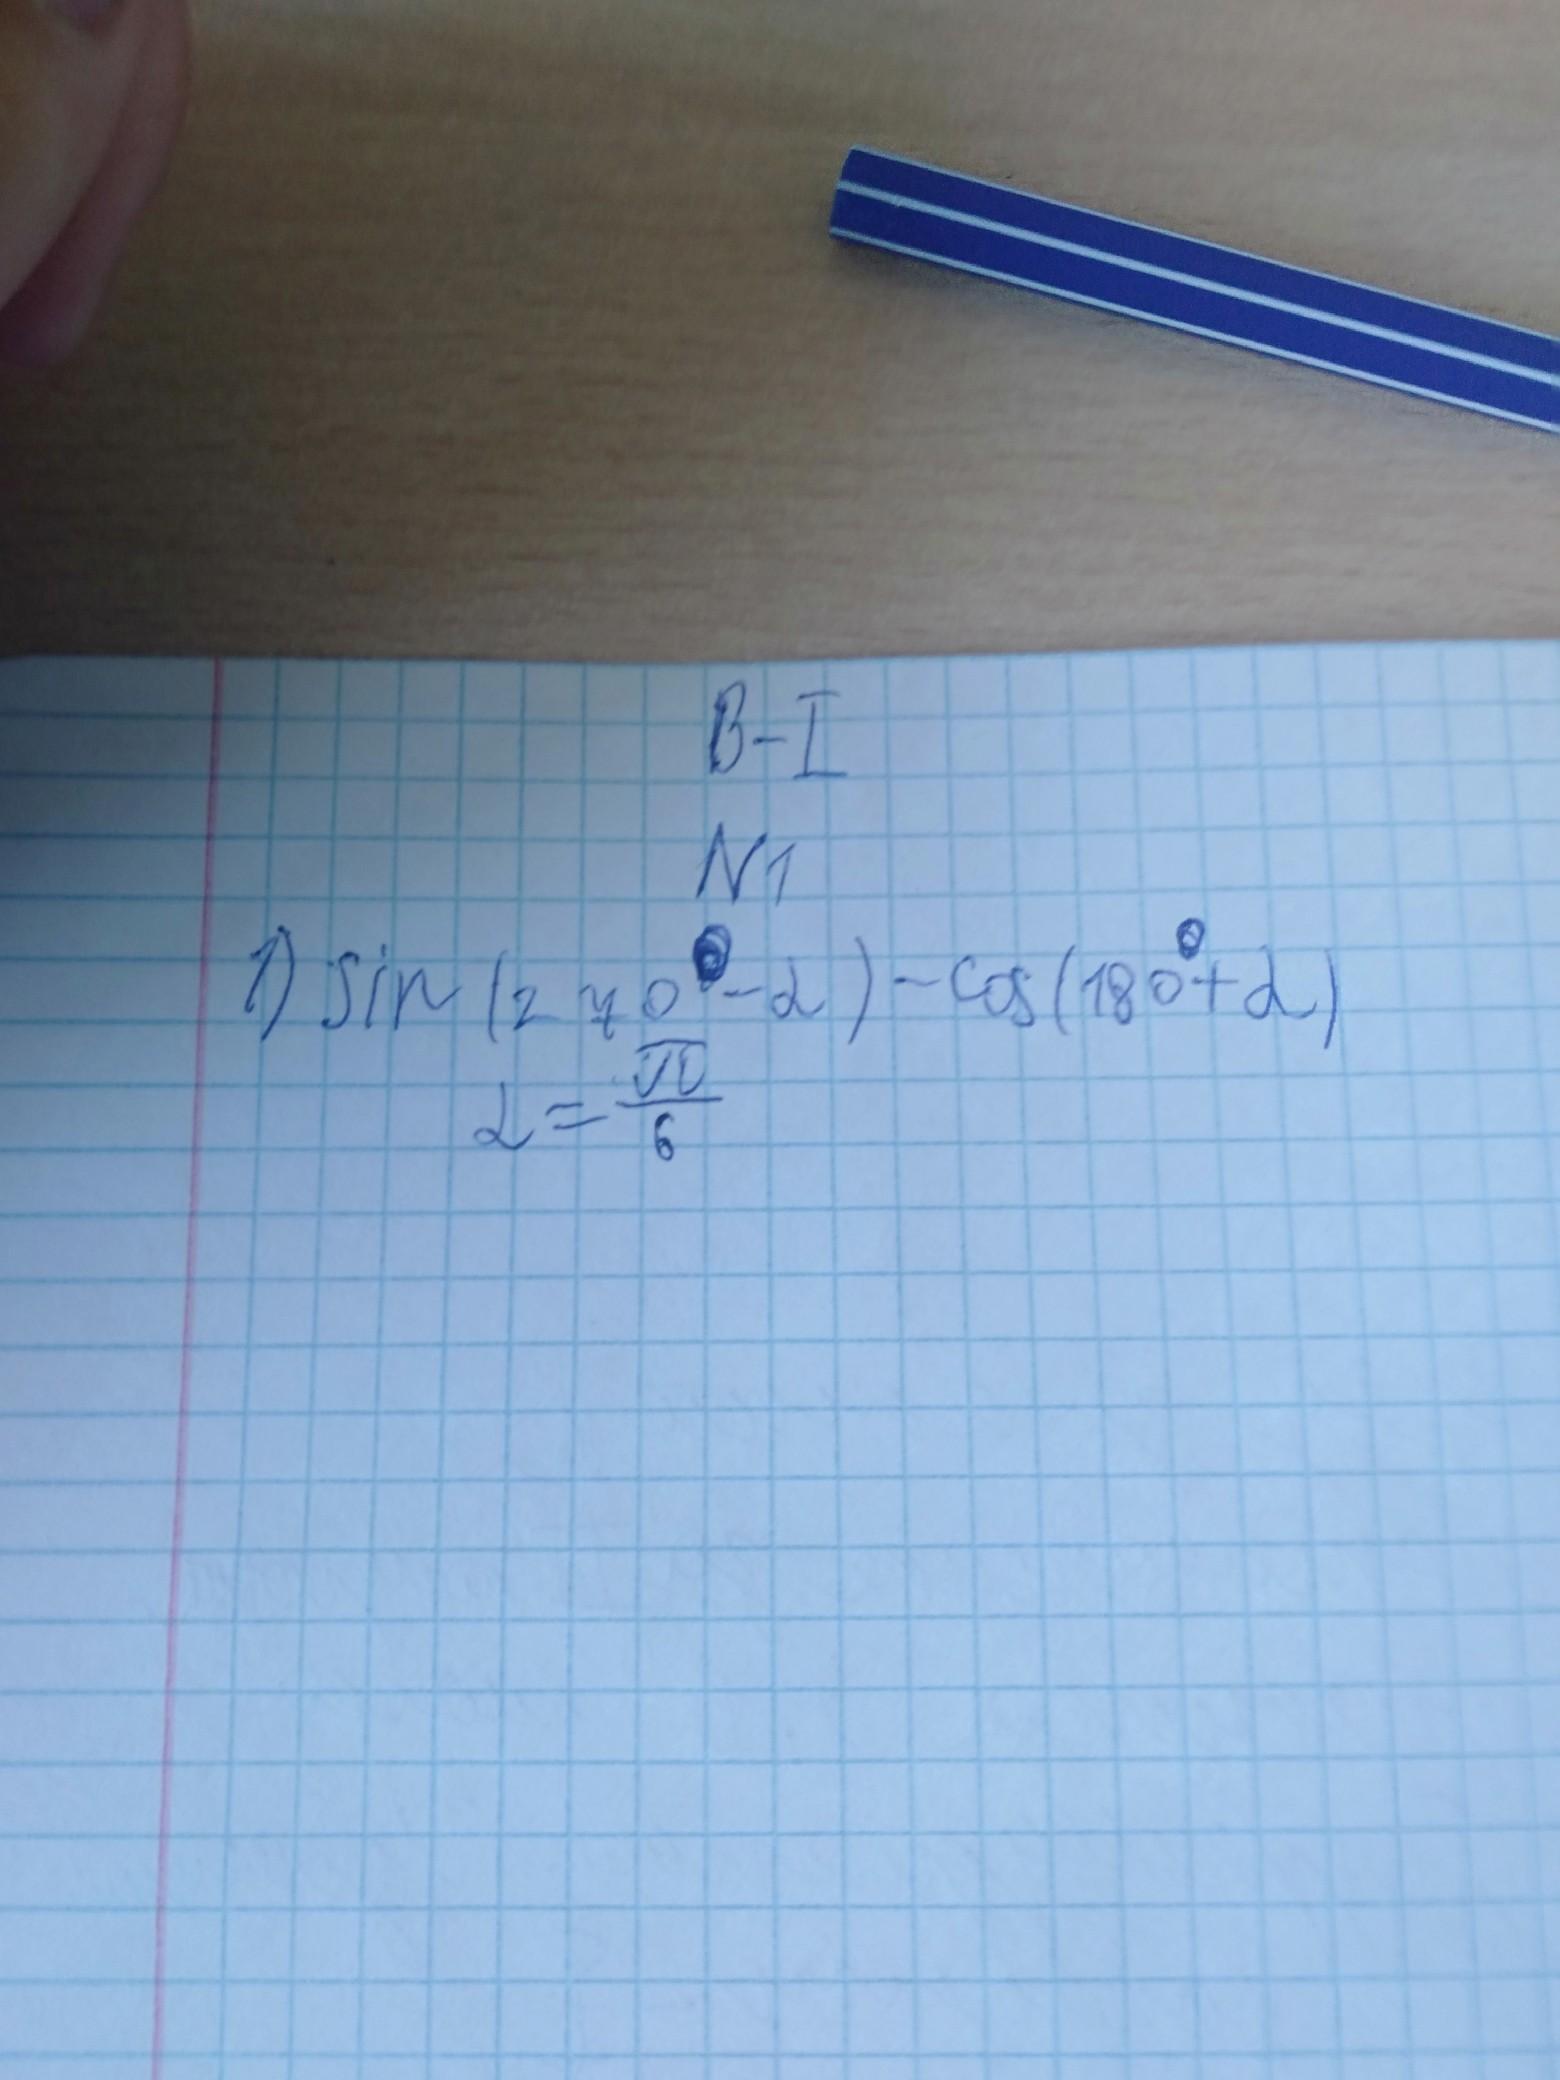 В-I
N1
1) sin (270°-α)-cos(180°+α)
α=π/6